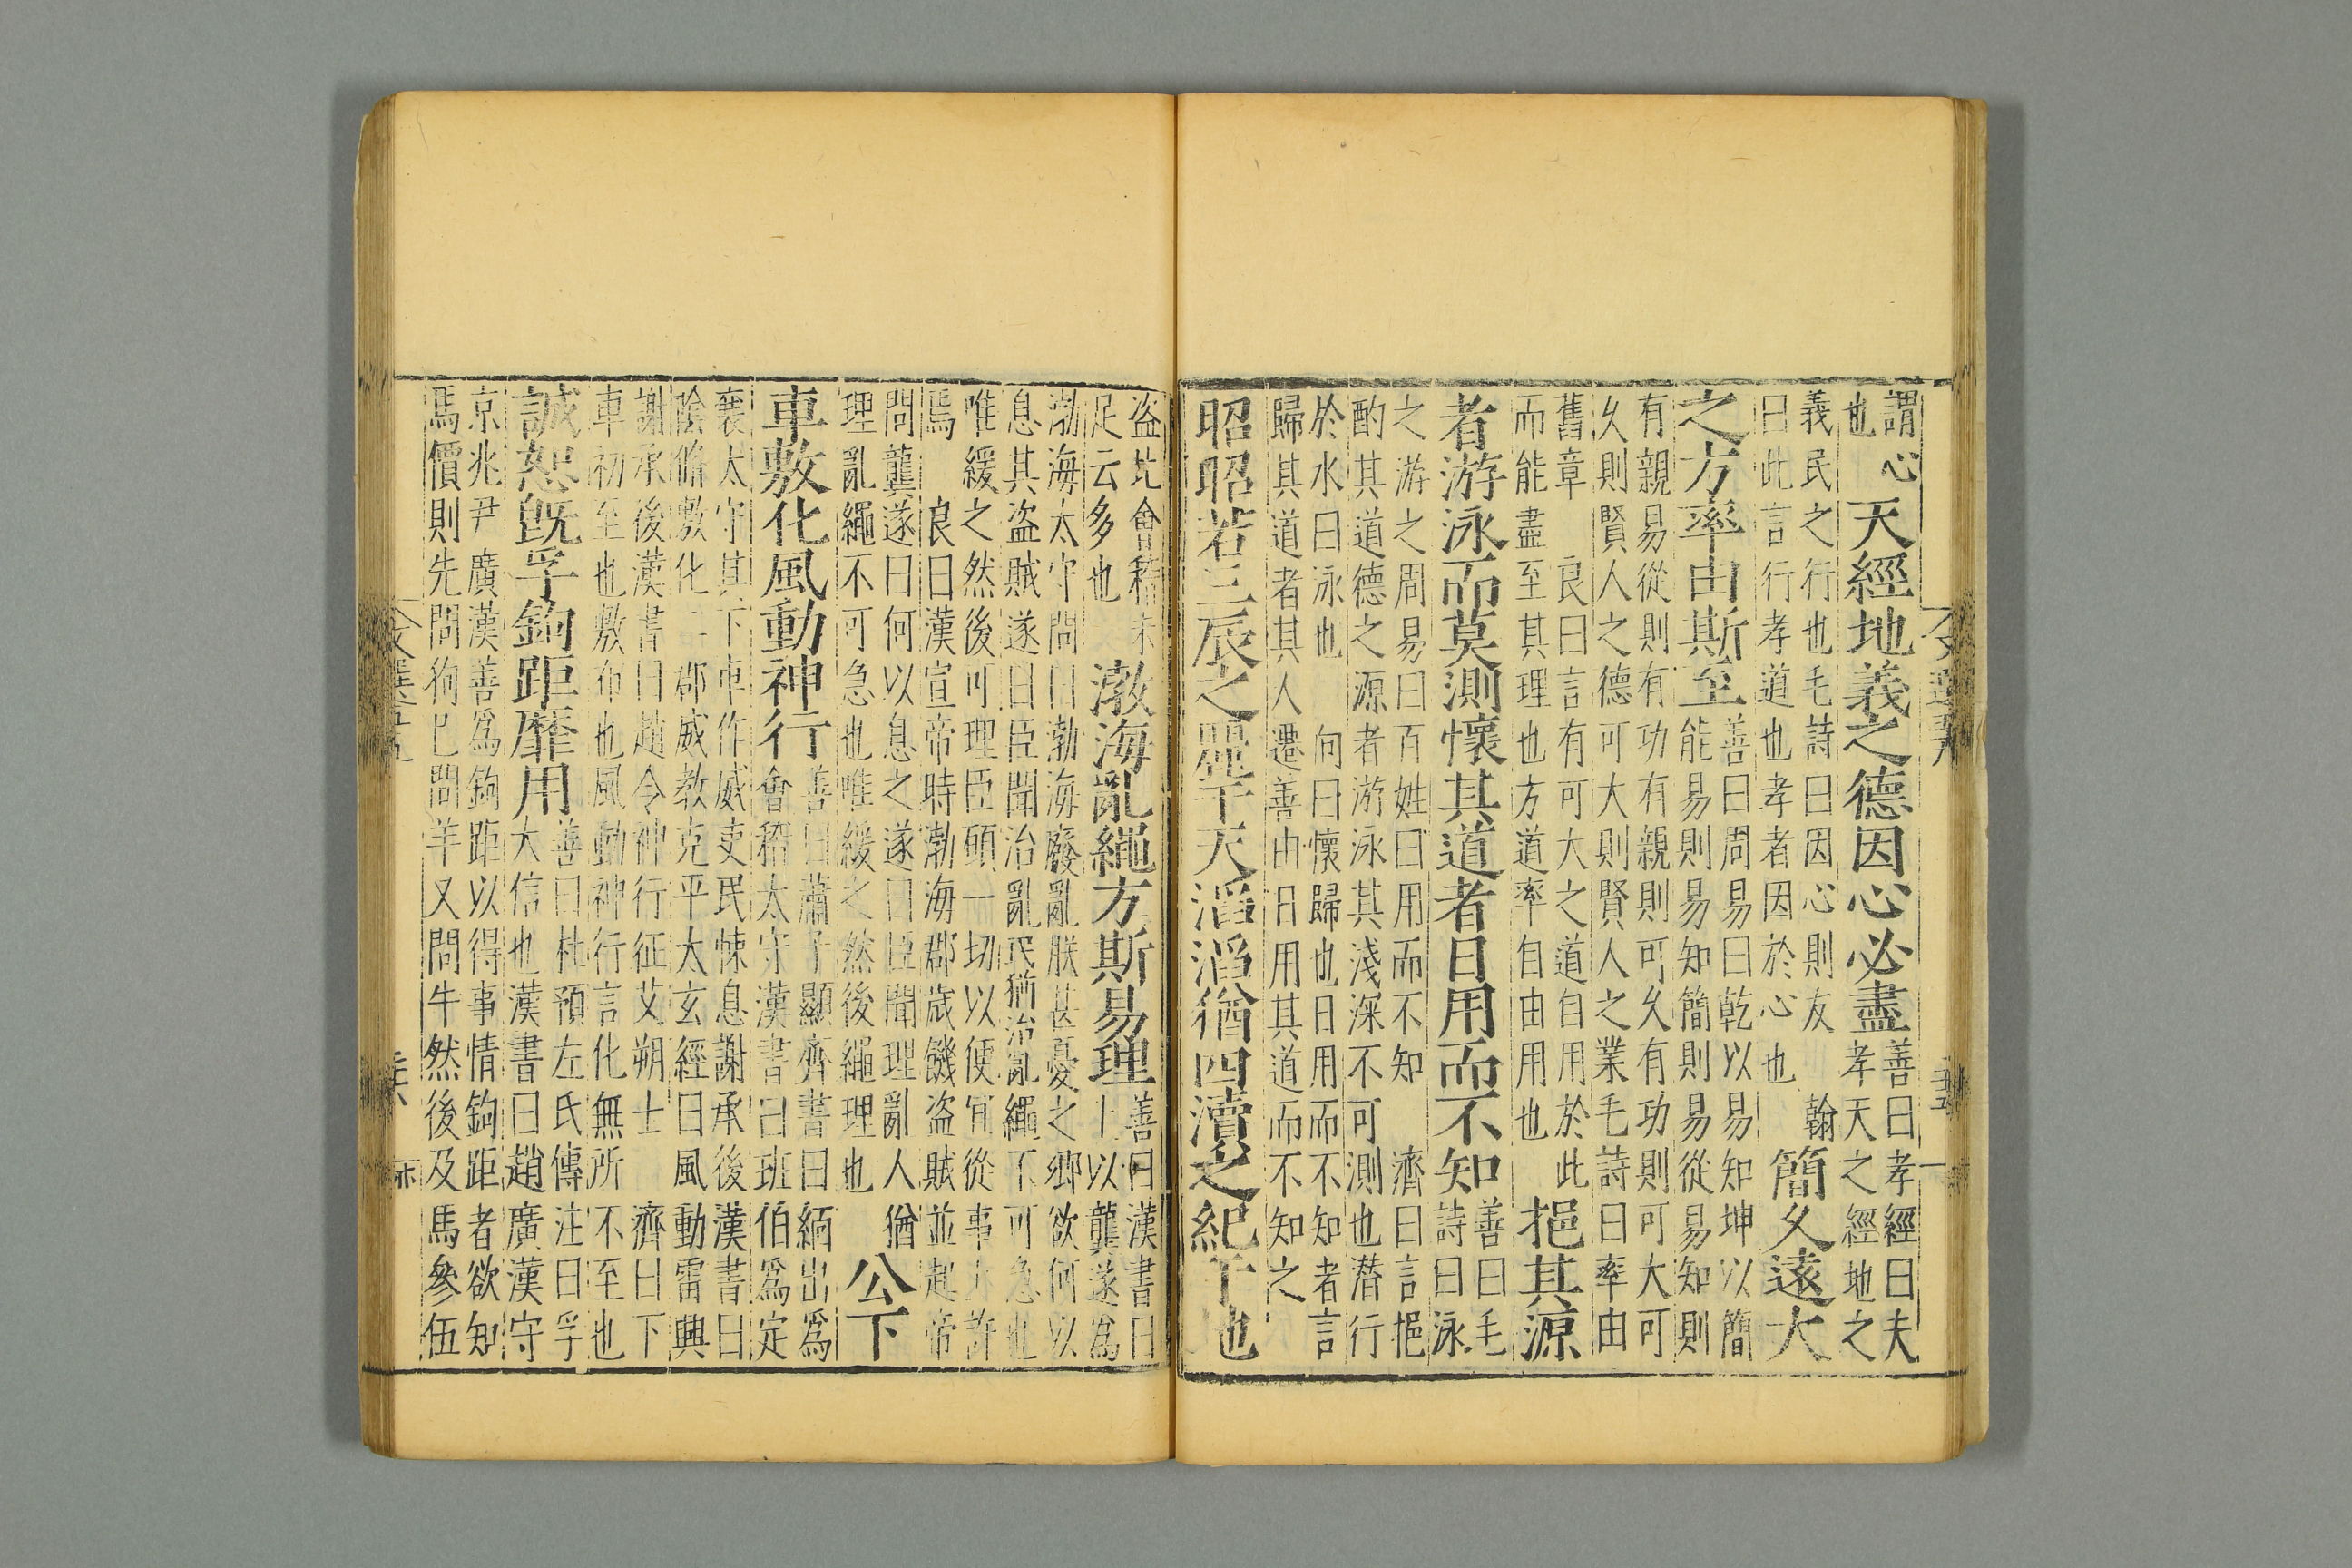 謂心
也
天經地義之德因心必盡
善曰孝經曰夫
孝天之經地之
義民之行也毛詩曰因心則友
曰此言行孝道也孝者因於心也
翰
簡久遠大
之方率由斯至
善曰周易曰乾以易知坤以簡
能易則易知簡則易從易知則
有親易從則有功有親則可久有功則可大可
久則賢人之德可大則賢人之業毛詩曰率由
舊章
良曰言有可大之道自用於此
而能盡至其理也方道率自由用也
挹其源
者游泳而莫測懷其道者日用而不知
善曰毛
詩曰泳
之游之周易曰百姓日用而不知
齊曰言挹
酌其道德之源者游泳其淺深不可測也潛行
於水曰泳也
向曰懷歸也日用而不知者言
歸其道者其人遷善由日用其道而不知之
昭昭若三辰之麗于天滔滔猶四瀆之紀于地
盜比會稽
足云多也
渤海亂繩方斯易理
善曰漢書曰
上以龔遂為
渤海太守問曰渤海廢亂朕甚憂之卿欲何以
息其盜賊遂曰臣聞治亂民猶治亂繩不可急也
唯緩之然後可理臣願一切以便宜從事上許
焉
良曰漢宣帝時渤海郡歲饑盜賊並起帝
問龔遂曰何以息之遂曰臣聞理亂人猶
理亂繩不可急也唯緩之然後繩理也
公下
車敷化風動神行
善曰蕭子顯齊書曰緬出為
會稽太守漢書曰班伯為定
襄太守其下車作威吏民悚息謝承後漢書曰
陰脩敷化二郡威教克平太玄經曰風動雷興
謝承後漢書曰趙令神行征艾朔士
齊曰下
車初至也敷布也風動神行言化無所不至也
誠恕旣孚鉤距靡用
善曰杜預左氏傳注曰孚
大信也漢書曰趙廣漢守
京兆尹廣漢善為鉤距以得事情鉤距者欲知
馬價則先問狗已問羊又問牛然後及馬參伍